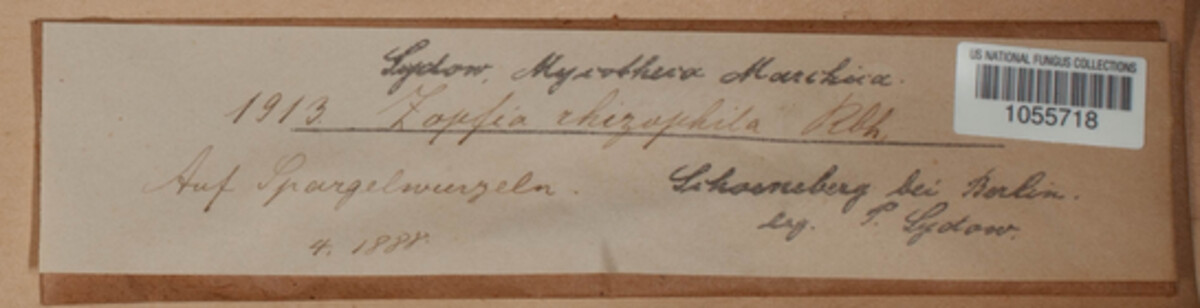 Sydow, Mycotheca Marchica.
1913 Zopfia rhizophila Rbh.
Auf Spargelwurzeln.
4. 1888.
Schoeneberg bei Berlin.
leg. P. Sydow.
US NATIONAL FUNGUS COLLECTIONS
1055718